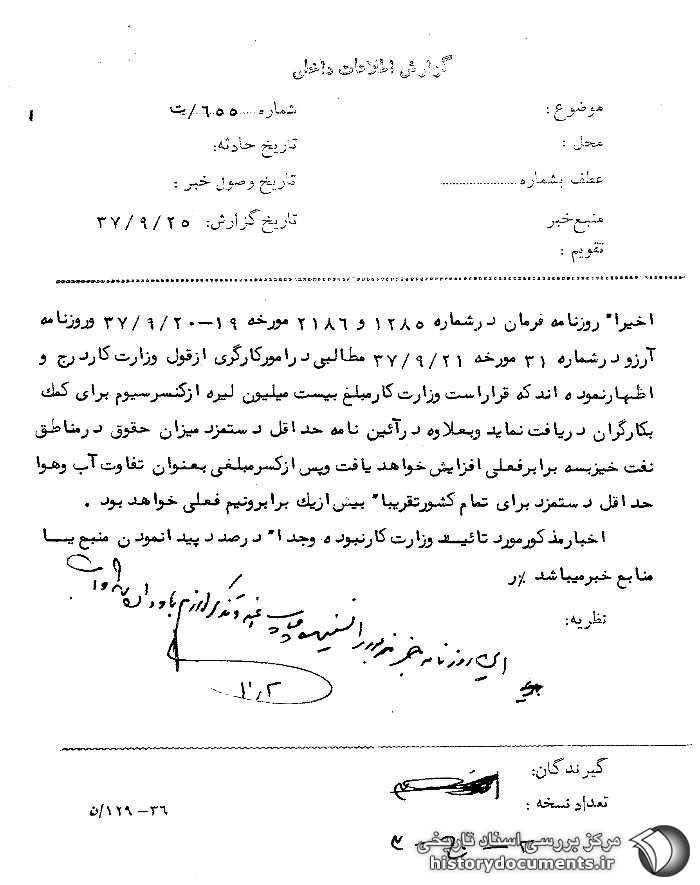 گزارش اطلاعات داخلی
موضوع :
شماره ۶۵۵/ت
محل :
تاریخ حادثه:
عطف بشماره
تاریخ وصول خبر :
منبع خبر
تاریخ گزارش: ۳۷/۹/۲۵
تقویم :
اخیرا" روزنامه فرمان درشماره ۱۲۸۵ و ۲۱۸۶ مورخه ۱۹-۳۷/۹/۲۰ وروزنامه
آرزو درشماره ۳۱ مورخه ۳۷/۹/۲۱ مطالبی درامورکارگری ازقول وزارت کاردرج و
اظهارنموده اندکه قراراست وزارت کارمبلغ بیست میلیون لیره ازکنسرسیوم برای کمک
بکارگران دریافت نماید وبعلاوه درآئین نامه حداقل دستمزد میزان حقوق درمناطق
نفت خیزبسه برابرفعلی افزایش خواهد یافت وپس ازکسرمبلغی بعنوان تفاوت آب وهوا
حداقل دستمزد برای تمام کشورتقریبا" بیش ازیک برابرونیم فعلی خواهد بود .
اخبارمذکورمورد تائید وزارت کارنبوده وجدا" درصدد پیدانمودن منبع یا
منابع خبرمیباشد %ر
نظریه:
این روزنامه خبر مزبور را
گیرندگان:
تعداد نسخه :
۳۶-۱۲۹/ن
مرکز بررسی اسناد تاریخی
historydocuments.ir